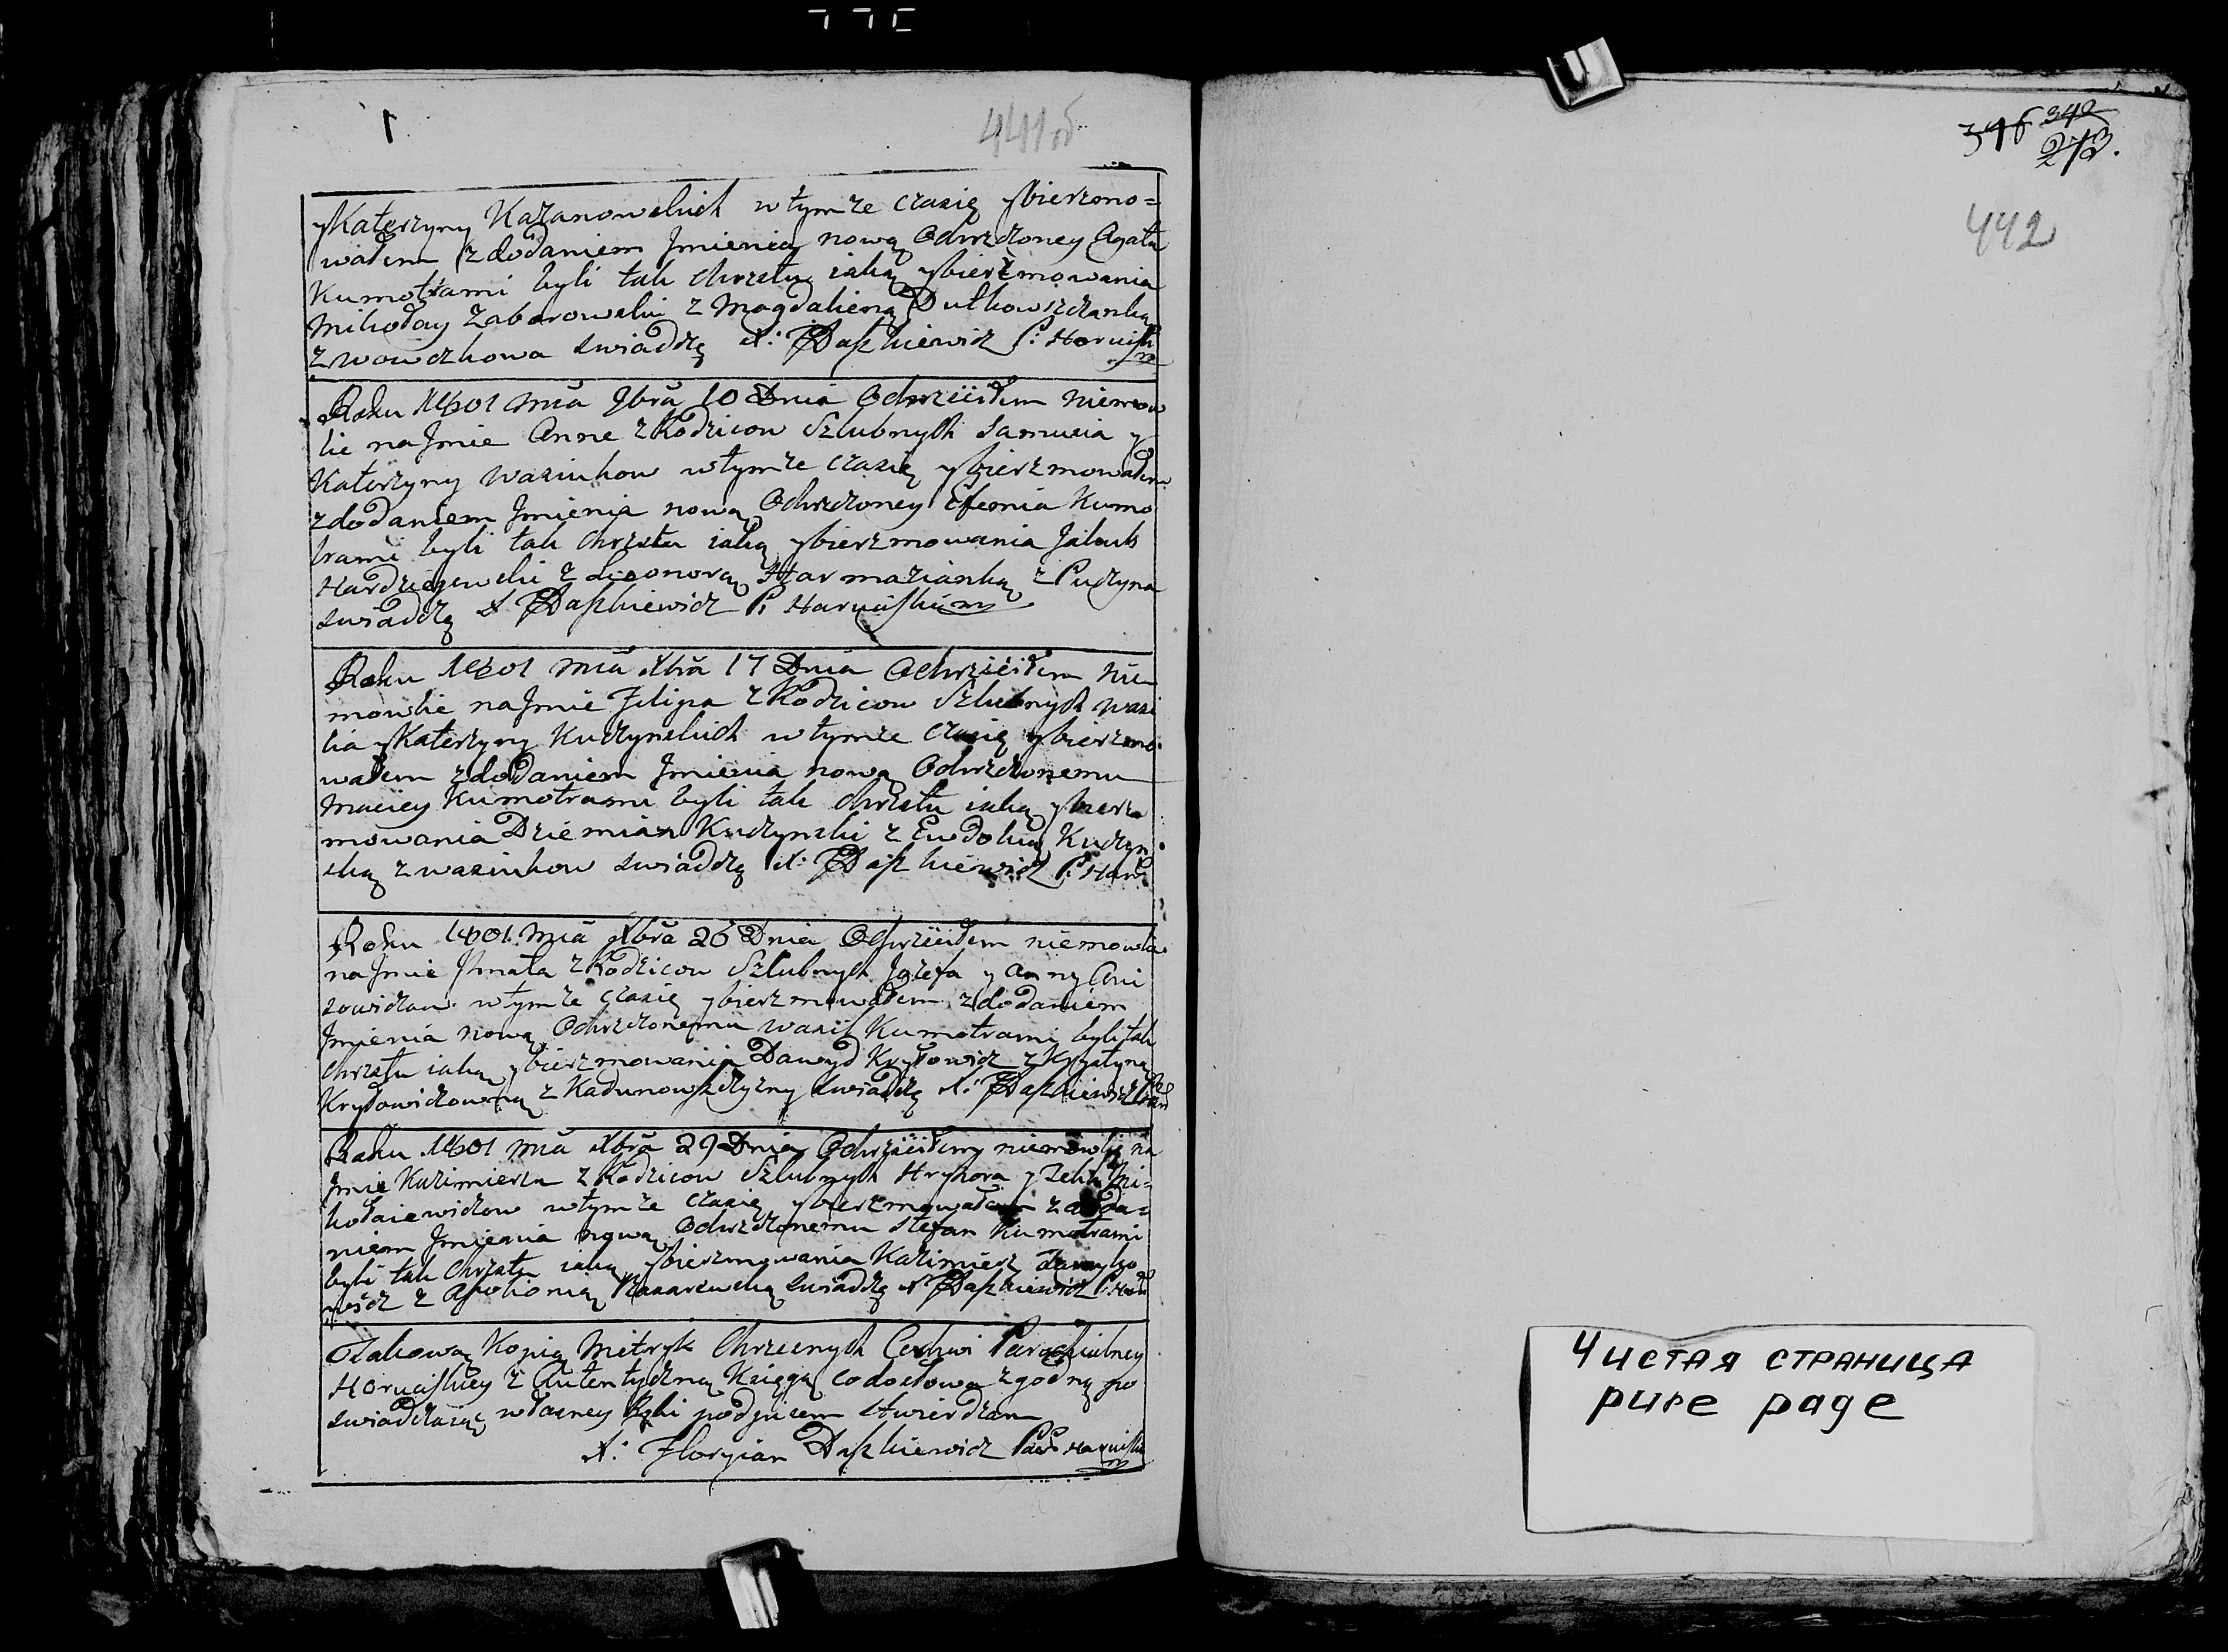 441об
yKaterzyny Kazanowskich w tymze czasię ybierzmo=
wałem z dodaniem Jmienia nową Ochrzczoney Agata
Kumotrami byli tak chrztu iaką ybierzmowania
Mikołay Zaborowski z Magdaleną Dułkowszczanką
z wowczkowa swiadczę X: F Daszkiewicz P: Horuisk
Roku 1801 mca 9bra 10 Dnia Ochrzciiłem niemow
lie na Jmie Anne z Rodzicow Szlubnych Samusia y
Katerzyny Wasiukow w tymze czasię ybierzmowałem
z dodaniem Jmienia nową Ochrzczoney Efemia Kumo
trami byli tak chrztu iaką ybierzmowania Jakub
z Leonorą z Puczyna
swiadczę X F Daszkiewicz P: Haruiskim
Roku 1801 mca Xbra 17 Dnia Ochrzciiłem nie
mowlie na Jmie Filipa z Rodzicow Szlubnych Wasi
lia yKaterzyny Kuczynskich w tymze czasię ybierzmo
wałem z dodaniem Jmienia nową Ochrzczonemu
Maciey Kumotrami byli tak chrztu iaką ybierz
mowania Dziemian Kuczynski z Ewdokią Kuczyn
ską z wasiukow swiadczę X: F Daszkiewicz P: Har:
Roku 1801 mca Xbra 26 Dnia Ochrzciiłem niemowlie
na Jmie Jhnata z Rodzicow Szlubnych Jozefa y Anny
w tymze czasię ybierzmowałem z dodaniem
Jmienia nową Ochrzczonemu Wasil Kumotrami byli tak
chrztu iaką ybierzmowania Dawyd Kryłowicz z Krystyną
Kryłowiczowną z Kadunowszczyzny swiadczę X: F Daszkiewicz
Roku 1801 mca Xbra 29 Dnia Ochrzciiłem niemowlię na
Jmie Kazimierza z Rodzicow Szlubnych Hryhora y Mi=
kołaiewiczow w tymze czasię ybierzmowałem z doda=
niem Jmienia nową Ochrzczonemu Stefan Kumotrami
byli tak chrztu iaką ybierzmowania Kazimierz
z Apolionią swiadczę X F Daszkiewicz P: Har
Takową Kopią Metryk Chrzesnych Cerkwi Parochialney
Horuiskiey z Autentyczną Xsięgą co do słowa zgodną po
swiadczaiąc własney Ręki podpisem stwierdzam
X: Floryian Daszkiewicz Par: Haruiski
346 342
273.
442
Чистая страница
pure page